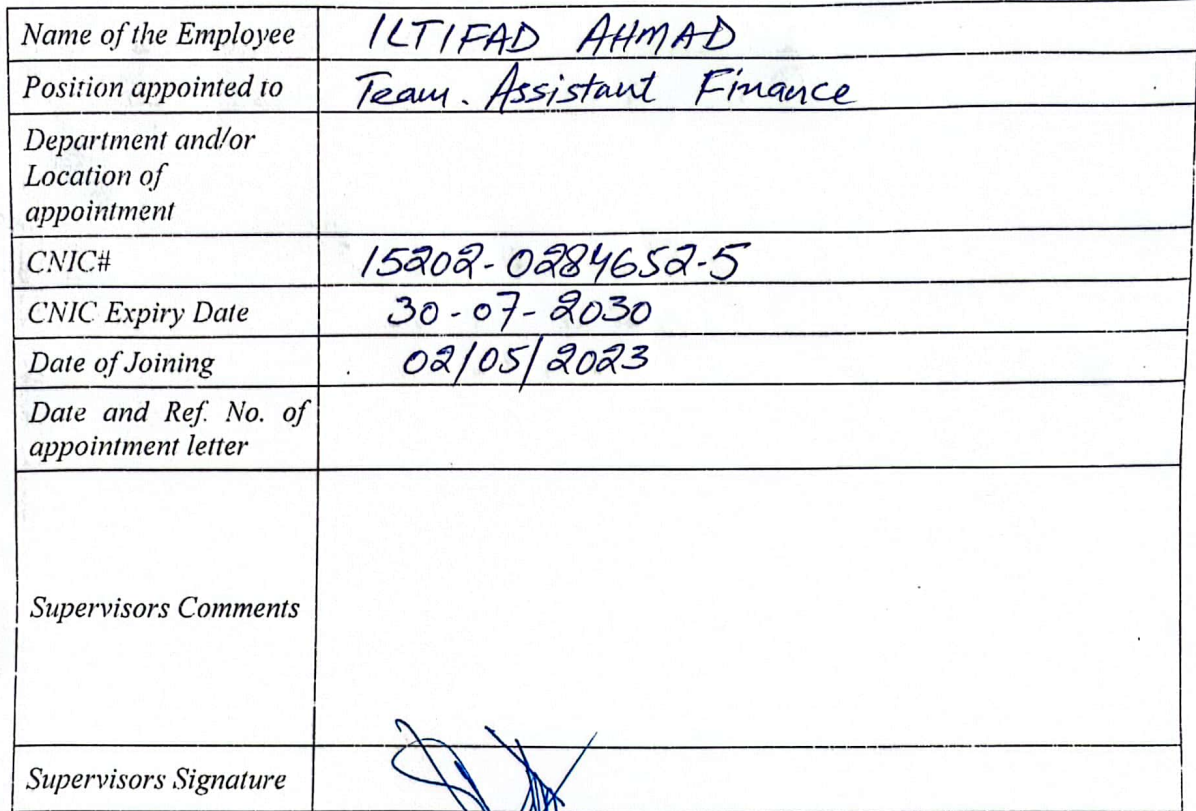 Name of the Employee ILTIFAD AHMAD
Position appointed to Team. Assistant Finance
Department and/or
Location of
appointment
CNIC# 15202-0284652-5
CNIC Expiry Date 30-07-2030
Date of Joining 02/05/2023
Date and Ref. No. of
appointment letter
Supervisors Comments
Supervisors Signature